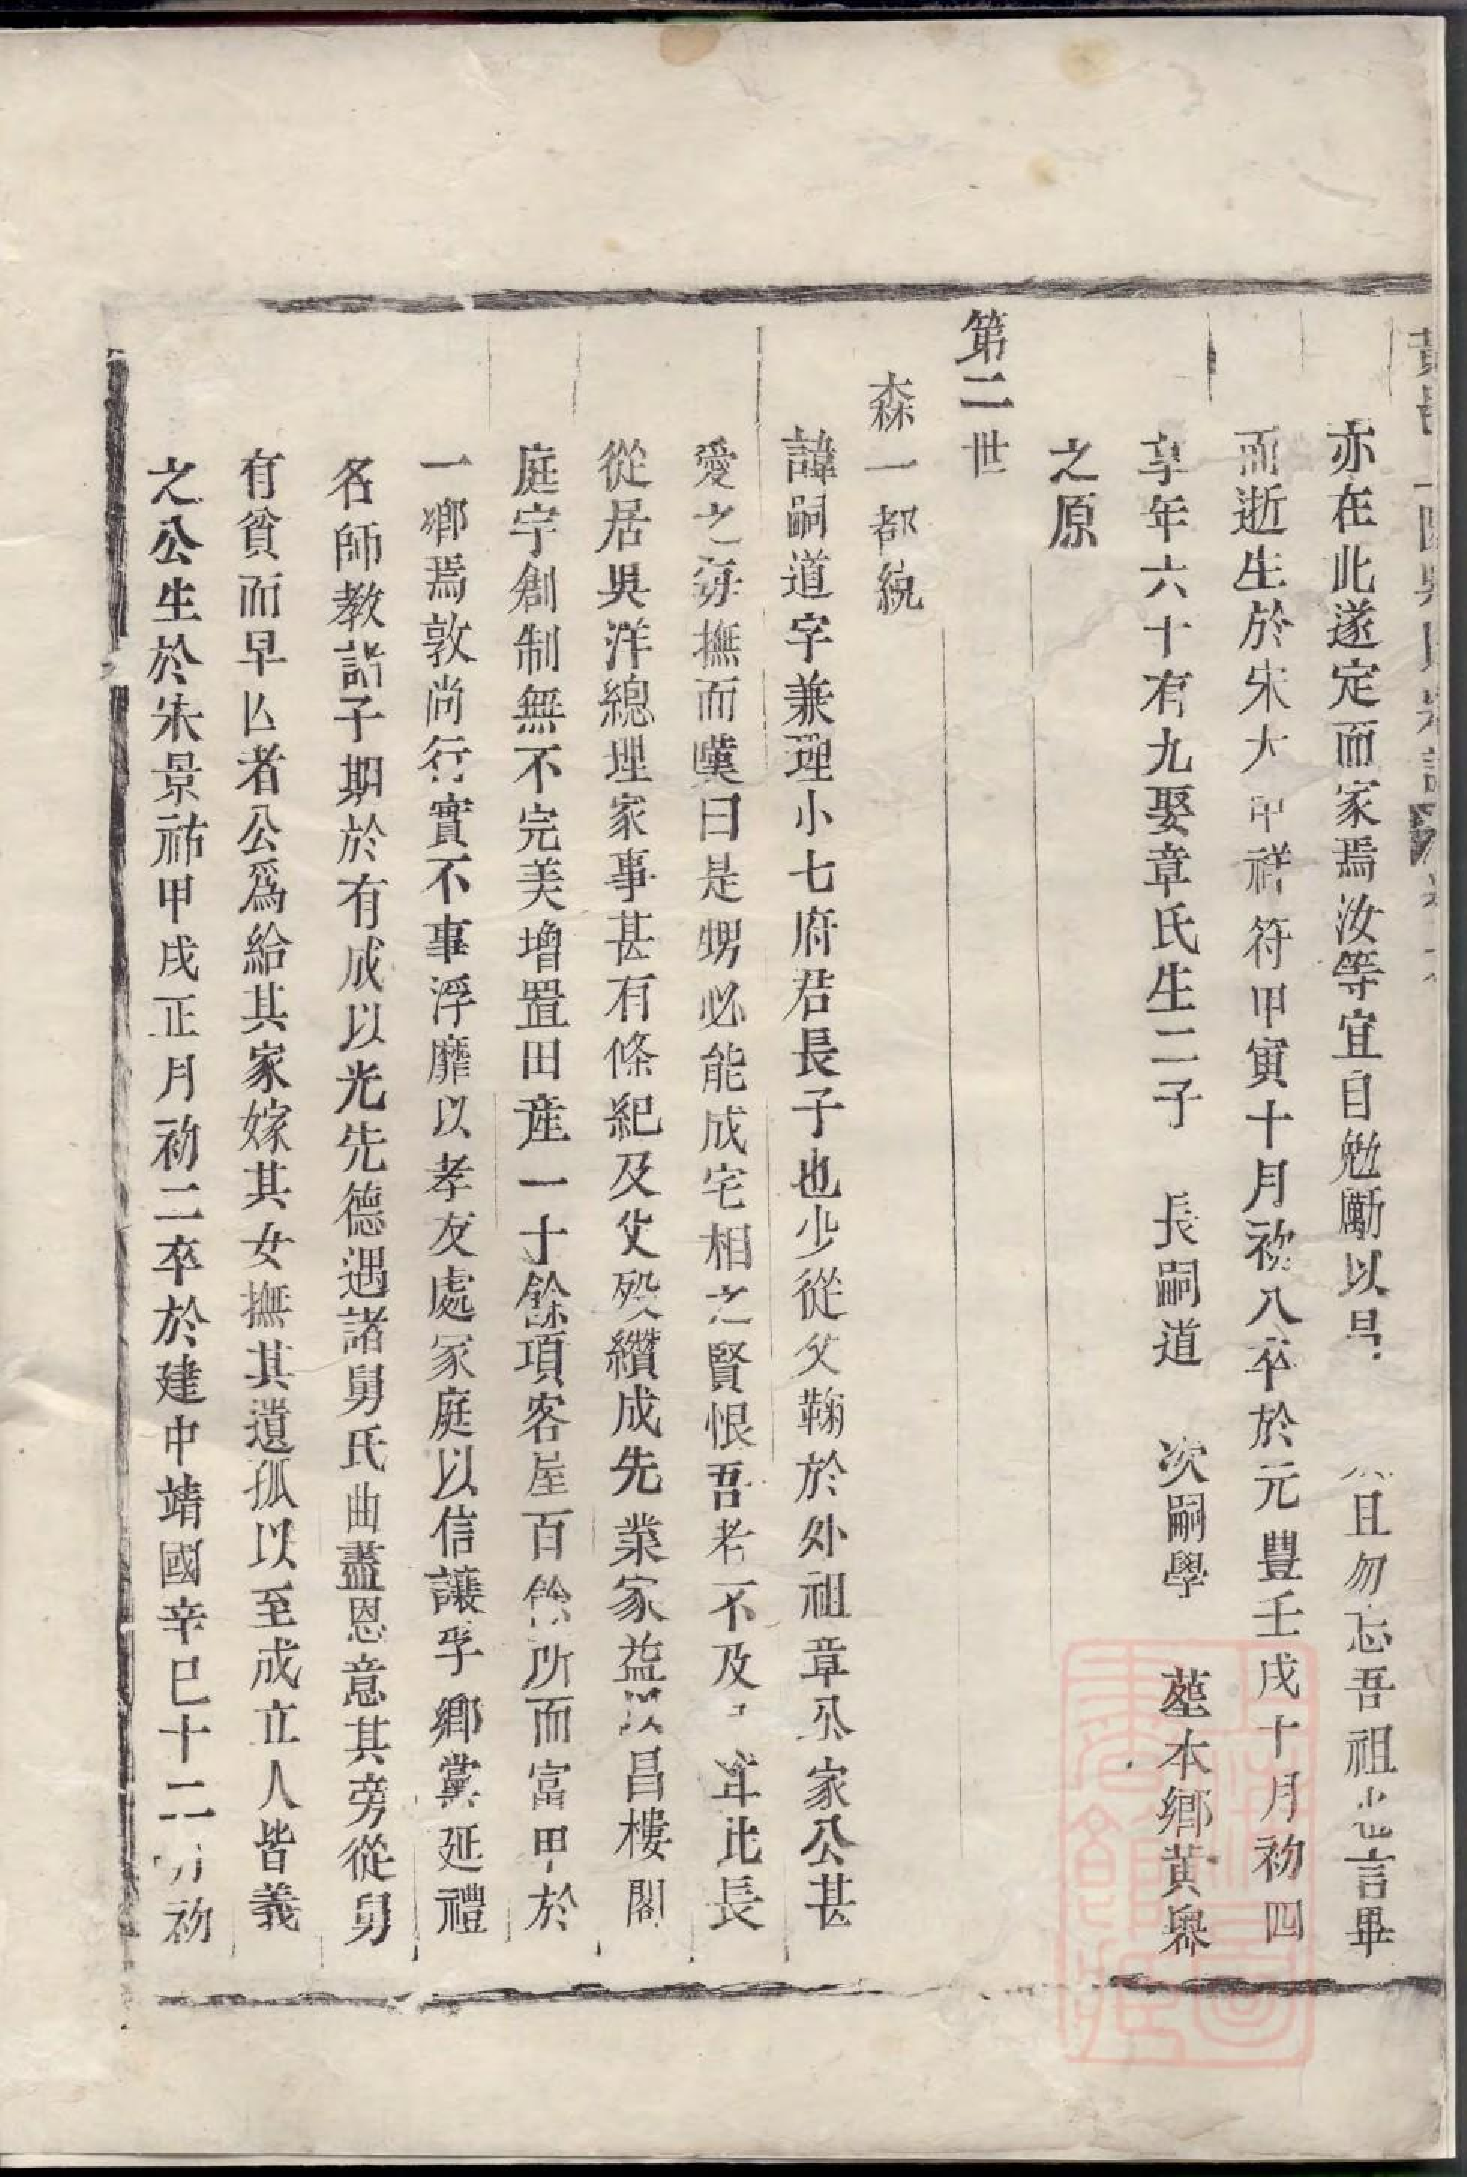 亦在此遂定而家焉汝等宜自勉勵以昌 且勿忘吾祖也言畢
而逝生於宋大中祥符甲寅十月初八卒於元豐壬戌十月初四
享年六十有九娶章氏生二子 長嗣道 次嗣學 塟本鄉黃輿
之原
第二世
森一都統
諱嗣道字兼理小七府君長子也少從父鞠於外祖章公家公甚
愛之每撫而嘆曰是甥必能成宅相之賢恨吾老不及 耳比長
從居吳洋總理家事甚有條紀及父歿纘成先業家益以昌樓閣
庭宇創制無不完美增置田産一十餘項客屋百餘所而富甲於
一鄉焉敦尚行實不事浮靡以孝友處家庭以信讓孚鄉黨延禮
名師教諸子期於有成以光先德遇諸舅氏曲盡恩意其旁從舅
有貧而早亾者公爲給其家嫁其女撫其遺孤以至成立人皆義
之公生於宋景祐甲戌正月初二卒於建中靖國辛巳十二月初